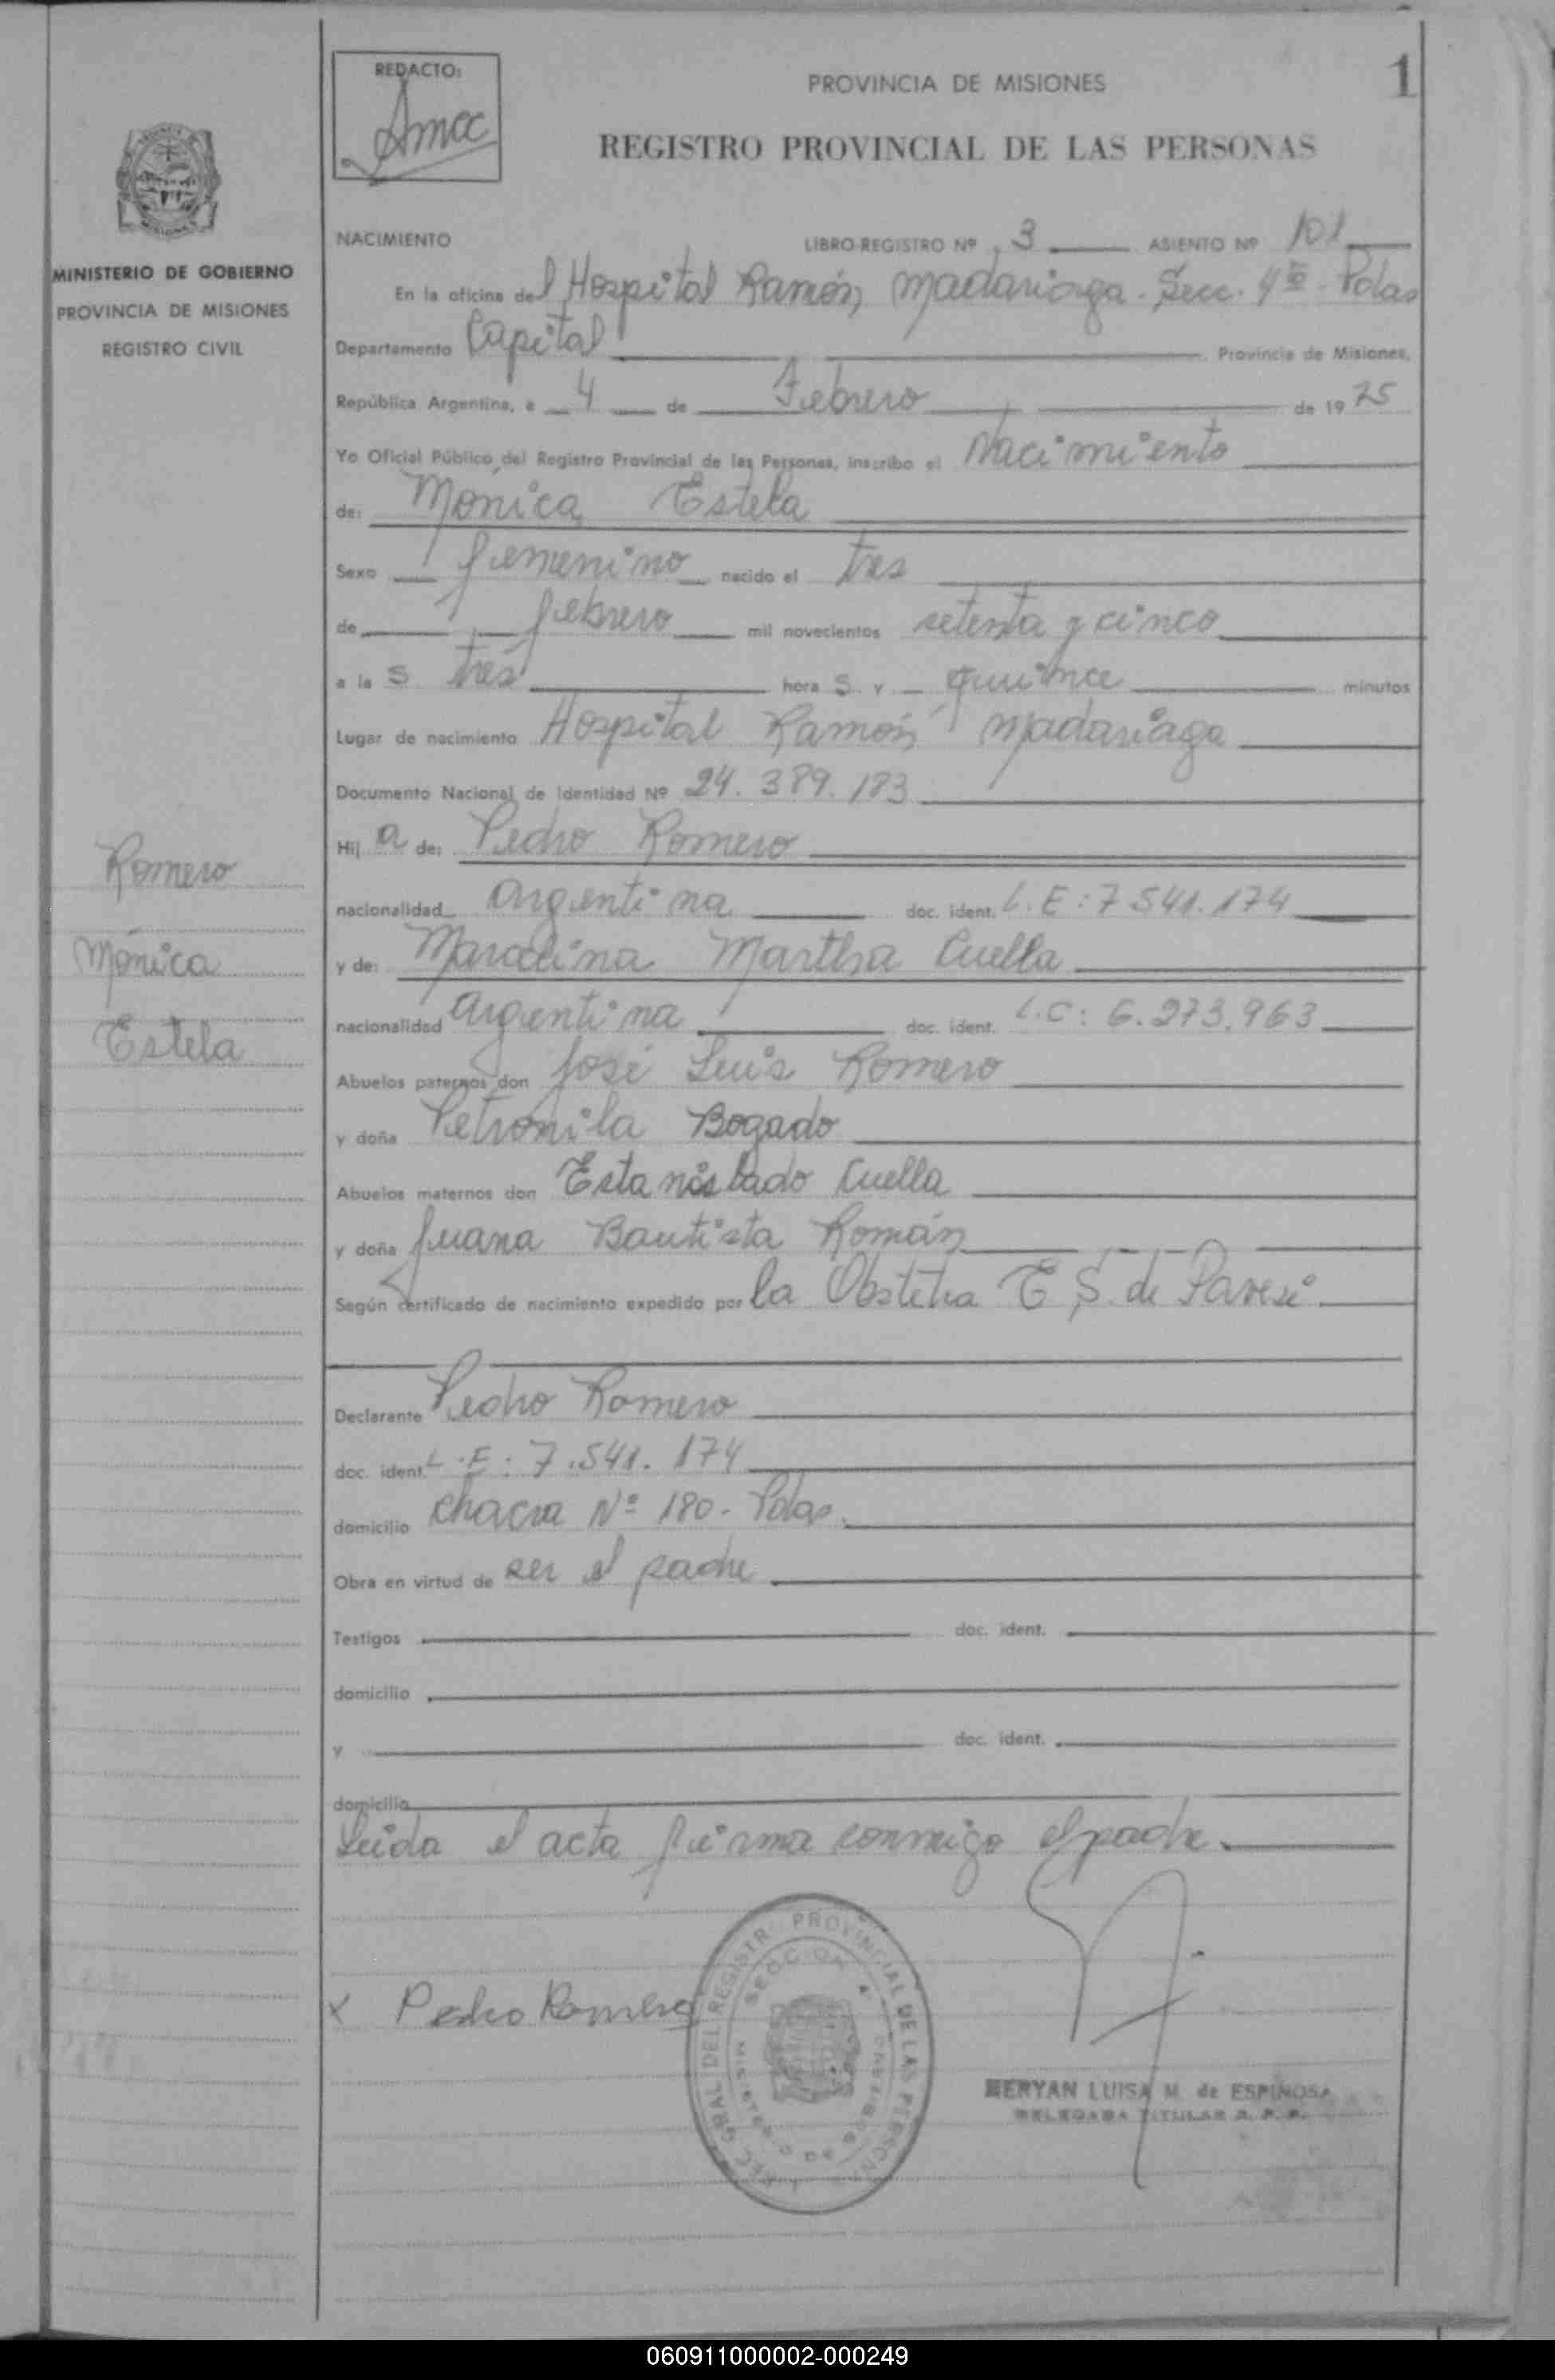 REDACTO:
PROVINCIA DE MISIONES
1
REGISTRO PROVINCIAL DE LAS PERSONAS
MINISTERIO DE GOBIERNO
PROVINCIA DE MISIONES
REGISTRO CIVIL
NACIMIENTO LIBRO-REGISTRO Nº 3 ASIENTO Nº 101
En la oficina del Hospital Ramón Madariaga. Secc. 4ta. Pdas
Departamento Capital Provincia de Misiones,
República Argentina, a 4 de Febrero de 1975
Yo Oficial Público del Registro Provincial de las Personas, inscribo el Nacimiento
de: Mónica Estela
Sexo femenino nacido el tres
de febrero mil novecientos setenta y cinco
a las tres horas y quince minutos
Lugar de nacimiento Hospital Ramón Madariaga
Documento Nacional de Identidad Nº 24.389.183
Hija de: Pedro Romero
nacionalidad argentina doc. ident. L.E: 7.541.174
y de: Marcelina Martha Cuella
nacionalidad argentina doc. ident. L.C: 6.273.963
Abuelos paternos don José Luis Romero
y doña Petronila Bogado
Abuelos maternos don Estanislado Cuella
y doña Juana Bautista Román
Según certificado de nacimiento expedido por la Obstetra E S. de Paresi
Declarante Pedro Romero
doc. ident. L.E: 7.541.174
domicilio chacra Nº 180 - Pdas.
Obra en virtud de ser el padre
Testigos doc. ident.
domicilio
y doc. ident.
domicilio
Leida el acta firma conmigo el padre.
x Pedro Romero
MERYAN LUISA M. de ESPINOSA
DELEGADA TITULAR R. P. P.
Romero
Mónica
Estela
060911000002-000249